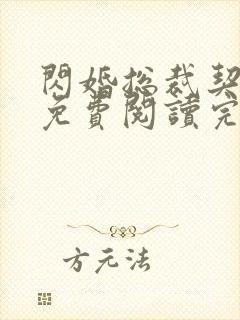 閃婚總裁契
免費閱讀完
方元法